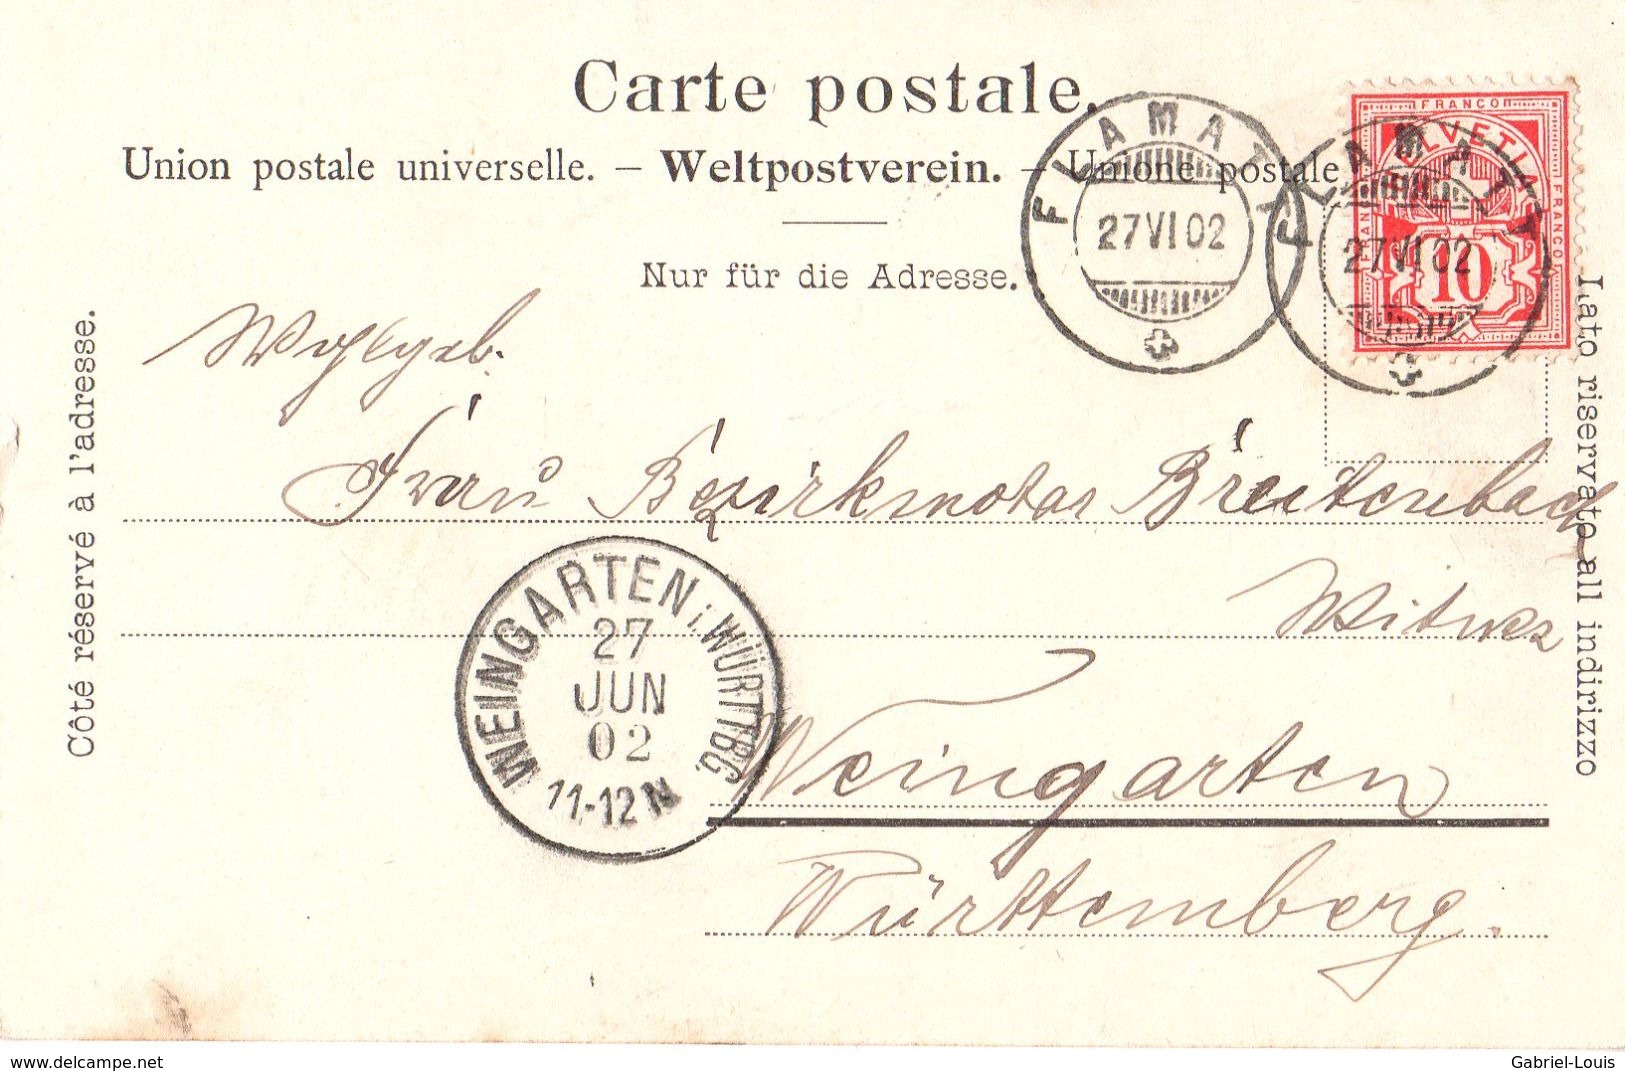 Carte postale.
Union postale universelle. – Weltpostverein. – Unione postale
Nur für die Adresse.
Côté réservé à l'adresse.
Lato riservato all indirizzo
FLAMATT
27 VI 02
FLAMATT
27 VI 02
FRANCO
HELVETIA
FRANCO
FRANCO
10
Wohlgeb.
Frau Bezirksnotar Breitenbach
Witwe
Weingarten
Württemberg.
WEINGARTEN i. WÜRTTBG.
27
JUN
02
11-12 N
www.delcampe.net
Gabriel-Louis